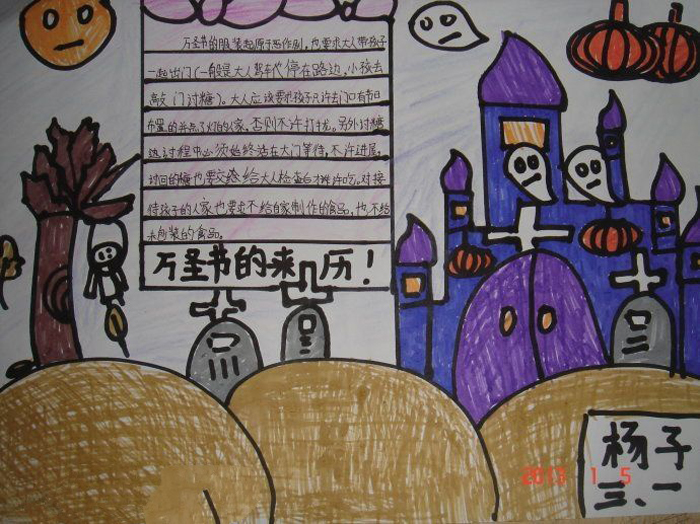 万圣节的服装起原于恶作剧,也要求大人带孩子
一起出门(一般是大人驾车停在路边,小孩去
敲门讨糖)。大人应该要求孩子只许去门口有节日
布置的并点了灯的人家,否则不许打扰。另外讨糖
过程中必须始终站在大门等待,不许进屋,
讨回的糖也要交给大人检查后才许吃。对接
待孩子的人家也要求不给自家制作的食品,也不给
未包装的食品。
万圣节的来历!
杨子
三、一
2013 1 5